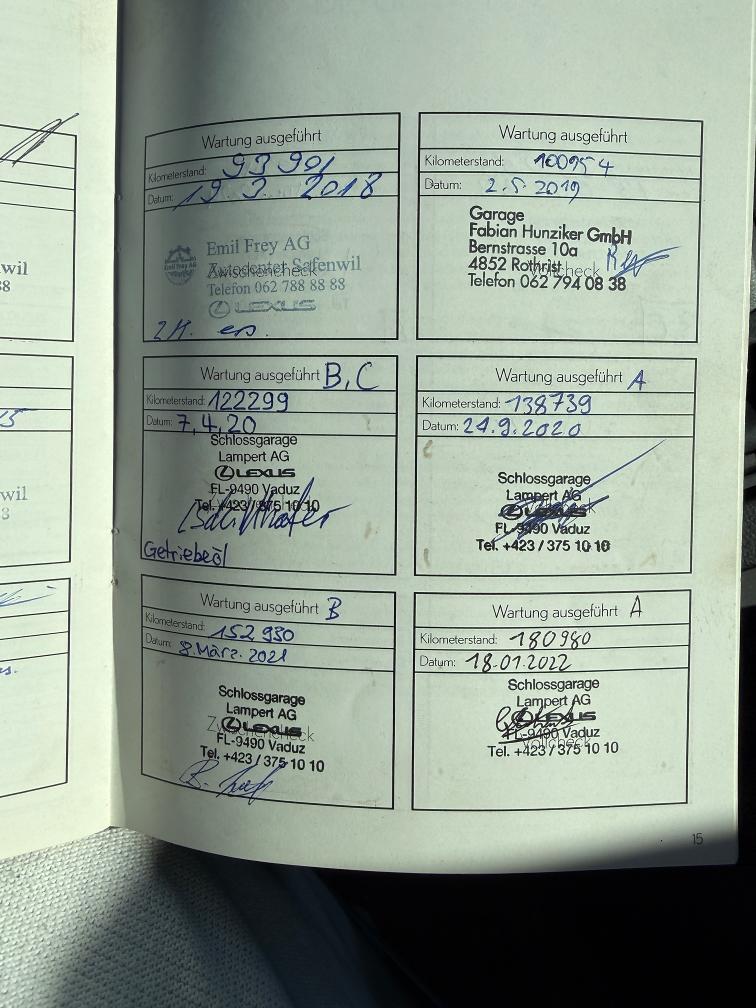 wil
88
15
wil
3
rs.
Wartung ausgeführt
Kilometerstand: 93901
Datum: 19.3.2018
Emil Frey AG
Zwischencheck
Autocenter Safenwil
Telefon 062 788 88 88
LEXUS
Wartung ausgeführt
Kilometerstand: 100954
Datum: 2.5.2019
Garage
Fabian Hunziker GmbH
Bernstrasse 10a
4852 Rothrist
Vollcheck
Telefon 062 794 08 38
Wartung ausgeführt B, C
Kilometerstand: 122299
Datum: 7,4,20
Schlossgarage
Lampert AG
LEXUS
FL-9490 Vaduz
Tel. +423 / 375 10 10
Getriebeöl
Wartung ausgeführt A
Kilometerstand: 138739
Datum: 24.9.2020
Schlossgarage
Lampert AG
LEXUS
FL-9490 Vaduz
Tel. +423 / 375 10 10
Wartung ausgeführt B
Kilometerstand: 152 930
Datum: 8. März. 2021
Schlossgarage
Lampert AG
LEXUS
Zwischencheck
FL-9490 Vaduz
Tel. +423 / 375 10 10
Wartung ausgeführt A
Kilometerstand: 180980
Datum: 18.01.2022
Schlossgarage
Lampert AG
LEXUS
FL-9490 Vaduz
Vollcheck
Tel. +423 / 375 10 10
15